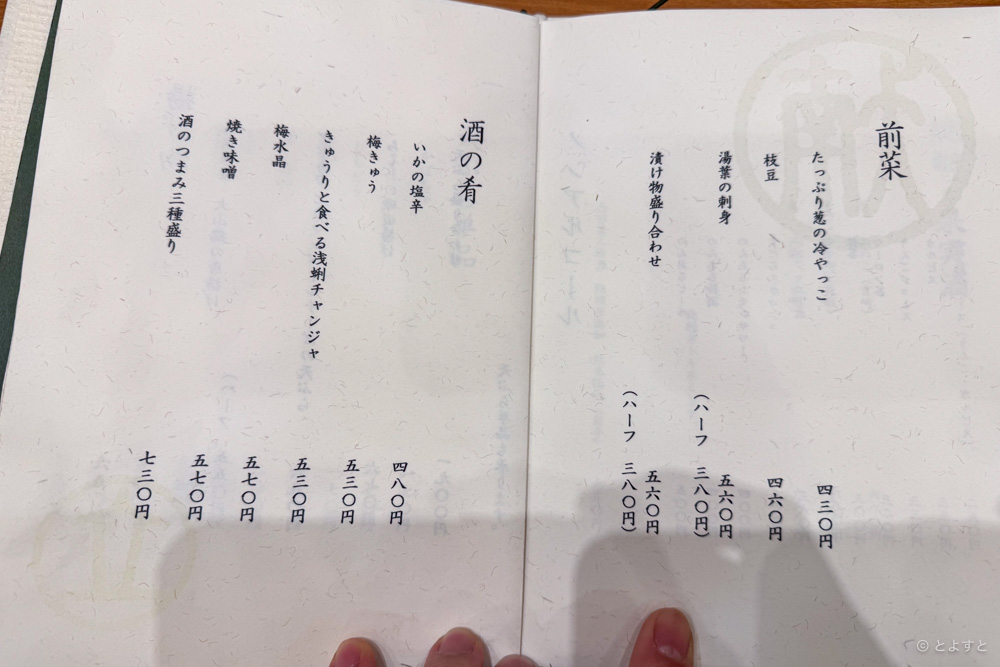 前菜
たっぷり葱の冷やっこ 四三〇円
枝豆 四六〇円
湯葉の刺身 五六〇円
(ハーフ 三八〇円)
漬け物盛り合わせ 五六〇円
(ハーフ 三八〇円)
酒の肴
いかの塩辛 四八〇円
梅きゅう 五三〇円
きゅうりと食べる浅蜊チャンジャ 五三〇円
梅水晶 五七〇円
焼き味噌 五七〇円
酒のつまみ三種盛り 七三〇円
© とよすと